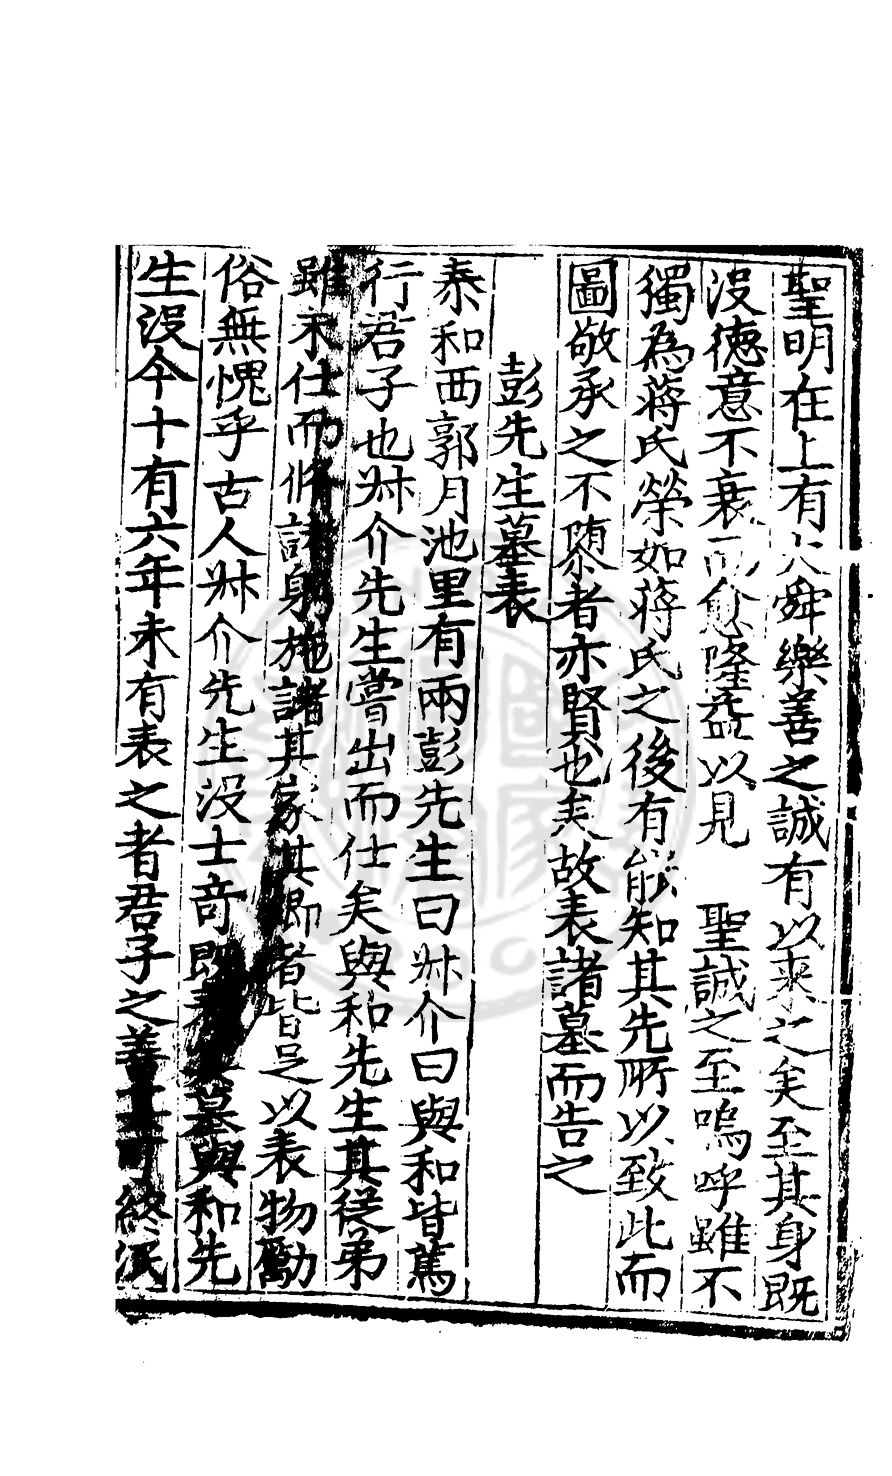 聖明在上有大舜樂善之誠有以來之矣至其身既
沒德意不衰而愈隆益以見　聖誠之至嗚呼雖不
獨為蔣氏榮如蔣氏之後有能知其先所以致此而
圖敬承之不隳者亦賢也矣故表諸墓而告之
彭先生墓表
泰和西郭月池里有兩彭先生曰尗介曰與和皆篤
行君子也尗介先生嘗出而仕矣與和先生其從弟
雖未仕而脩諸身施諸其家其鄉者皆足以表物勵
俗無愧乎古人尗介先生沒士奇既表墓與和先
生沒今十有六年未有表之者君子之善可終泯